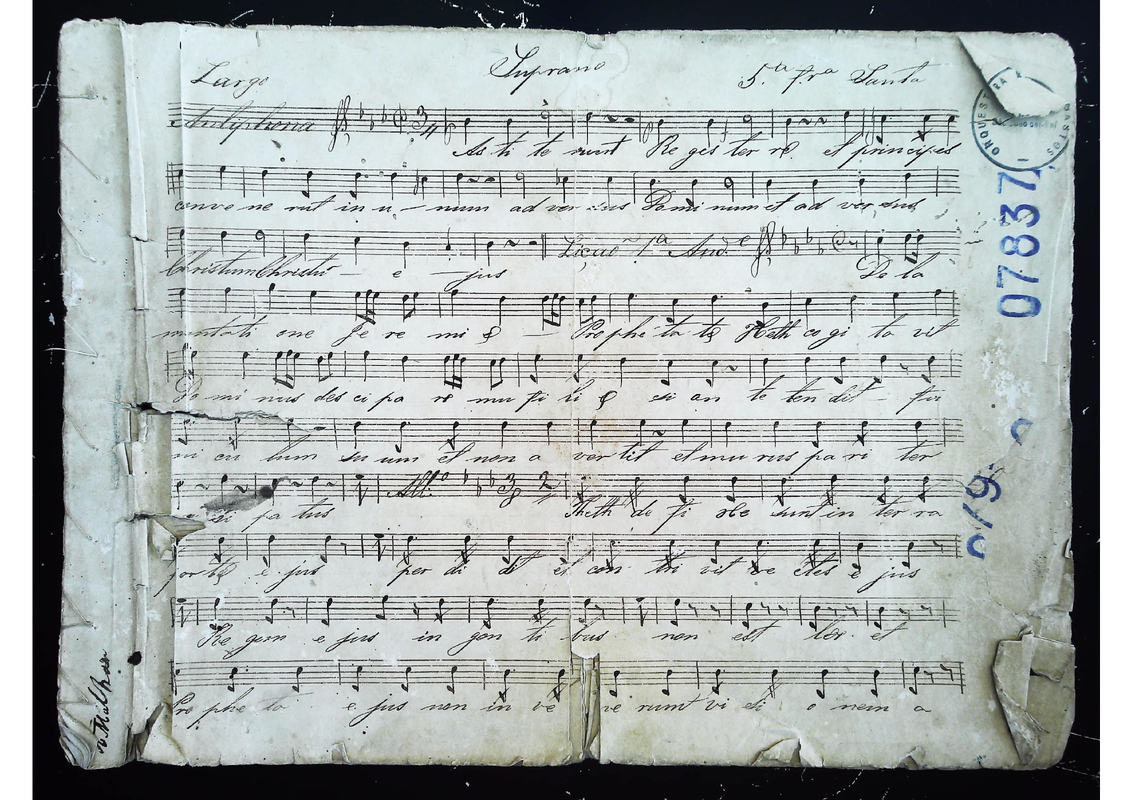 Largo Soprano 5.ª fr.ª Santa
Antiphona
As ti te runt Re ges ter re et principes
conve ne rut in u - num ad ver sus Dominum et ad ver sus
Christum Christu - e - jus
1ª And.e
De la
mentati one Je re mi ę - Prophe ta tę Heth co gi ta vit
Do mi nus des ci pa re mu fi li ę si on te ten dit - fu
ni cu lum su um et non a ver tit et mu rus pa ri ter
pa tus
All.o
Theth de fi xe sunt in ter ra
por tę e jus per di dit et con tri vit ve ctes e jus
Re gem e jus in gen ti bus non est lex et
Pro phe ta e jus non in ve ne runt vi si o nem a
ORQUESTRA
BASTOS
07837